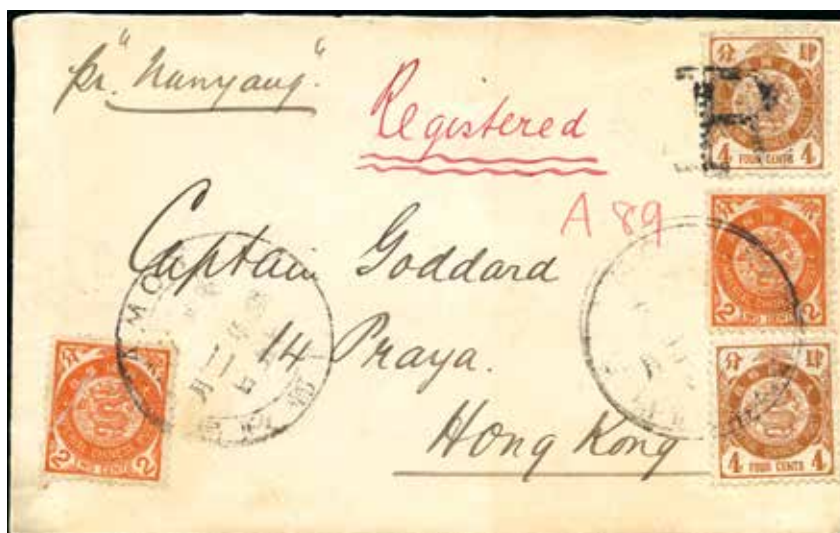 pr. "Nanyang"
Registered
A 89
Captain Goddard
14 Praya.
Hong Kong
分 肆
4 FOUR CENTS 4
2 TWO CENTS 2
分 肆
4 FOUR CENTS 4
2 TWO CENTS 2
AMOY